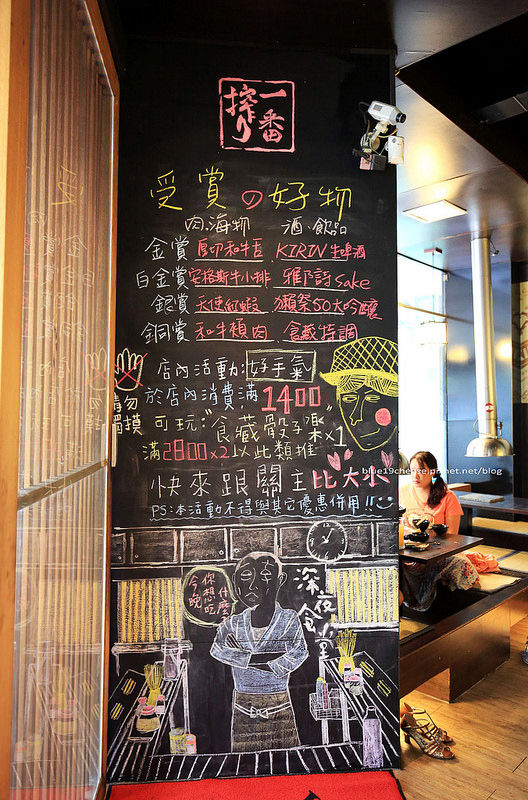 一番
搾り
受賞の好物
肉.海物 酒.飲品
金賞 厚切和牛舌 KIRIN生啤酒
白金賞 安格斯牛小排 雅乃詩sake
銀賞 天使紅蝦 獺祭50大吟釀
銅賞 和牛頰肉 食藏特調
店內活動:好手氣
於店內消費滿1400
可玩:"食藏骰子樂"x1
滿2800x2以此類推
快來跟關主比大小
PS:本活動不得與其它優惠併用!!
請勿
觸摸
你想吃什麼
今晚
深夜食堂